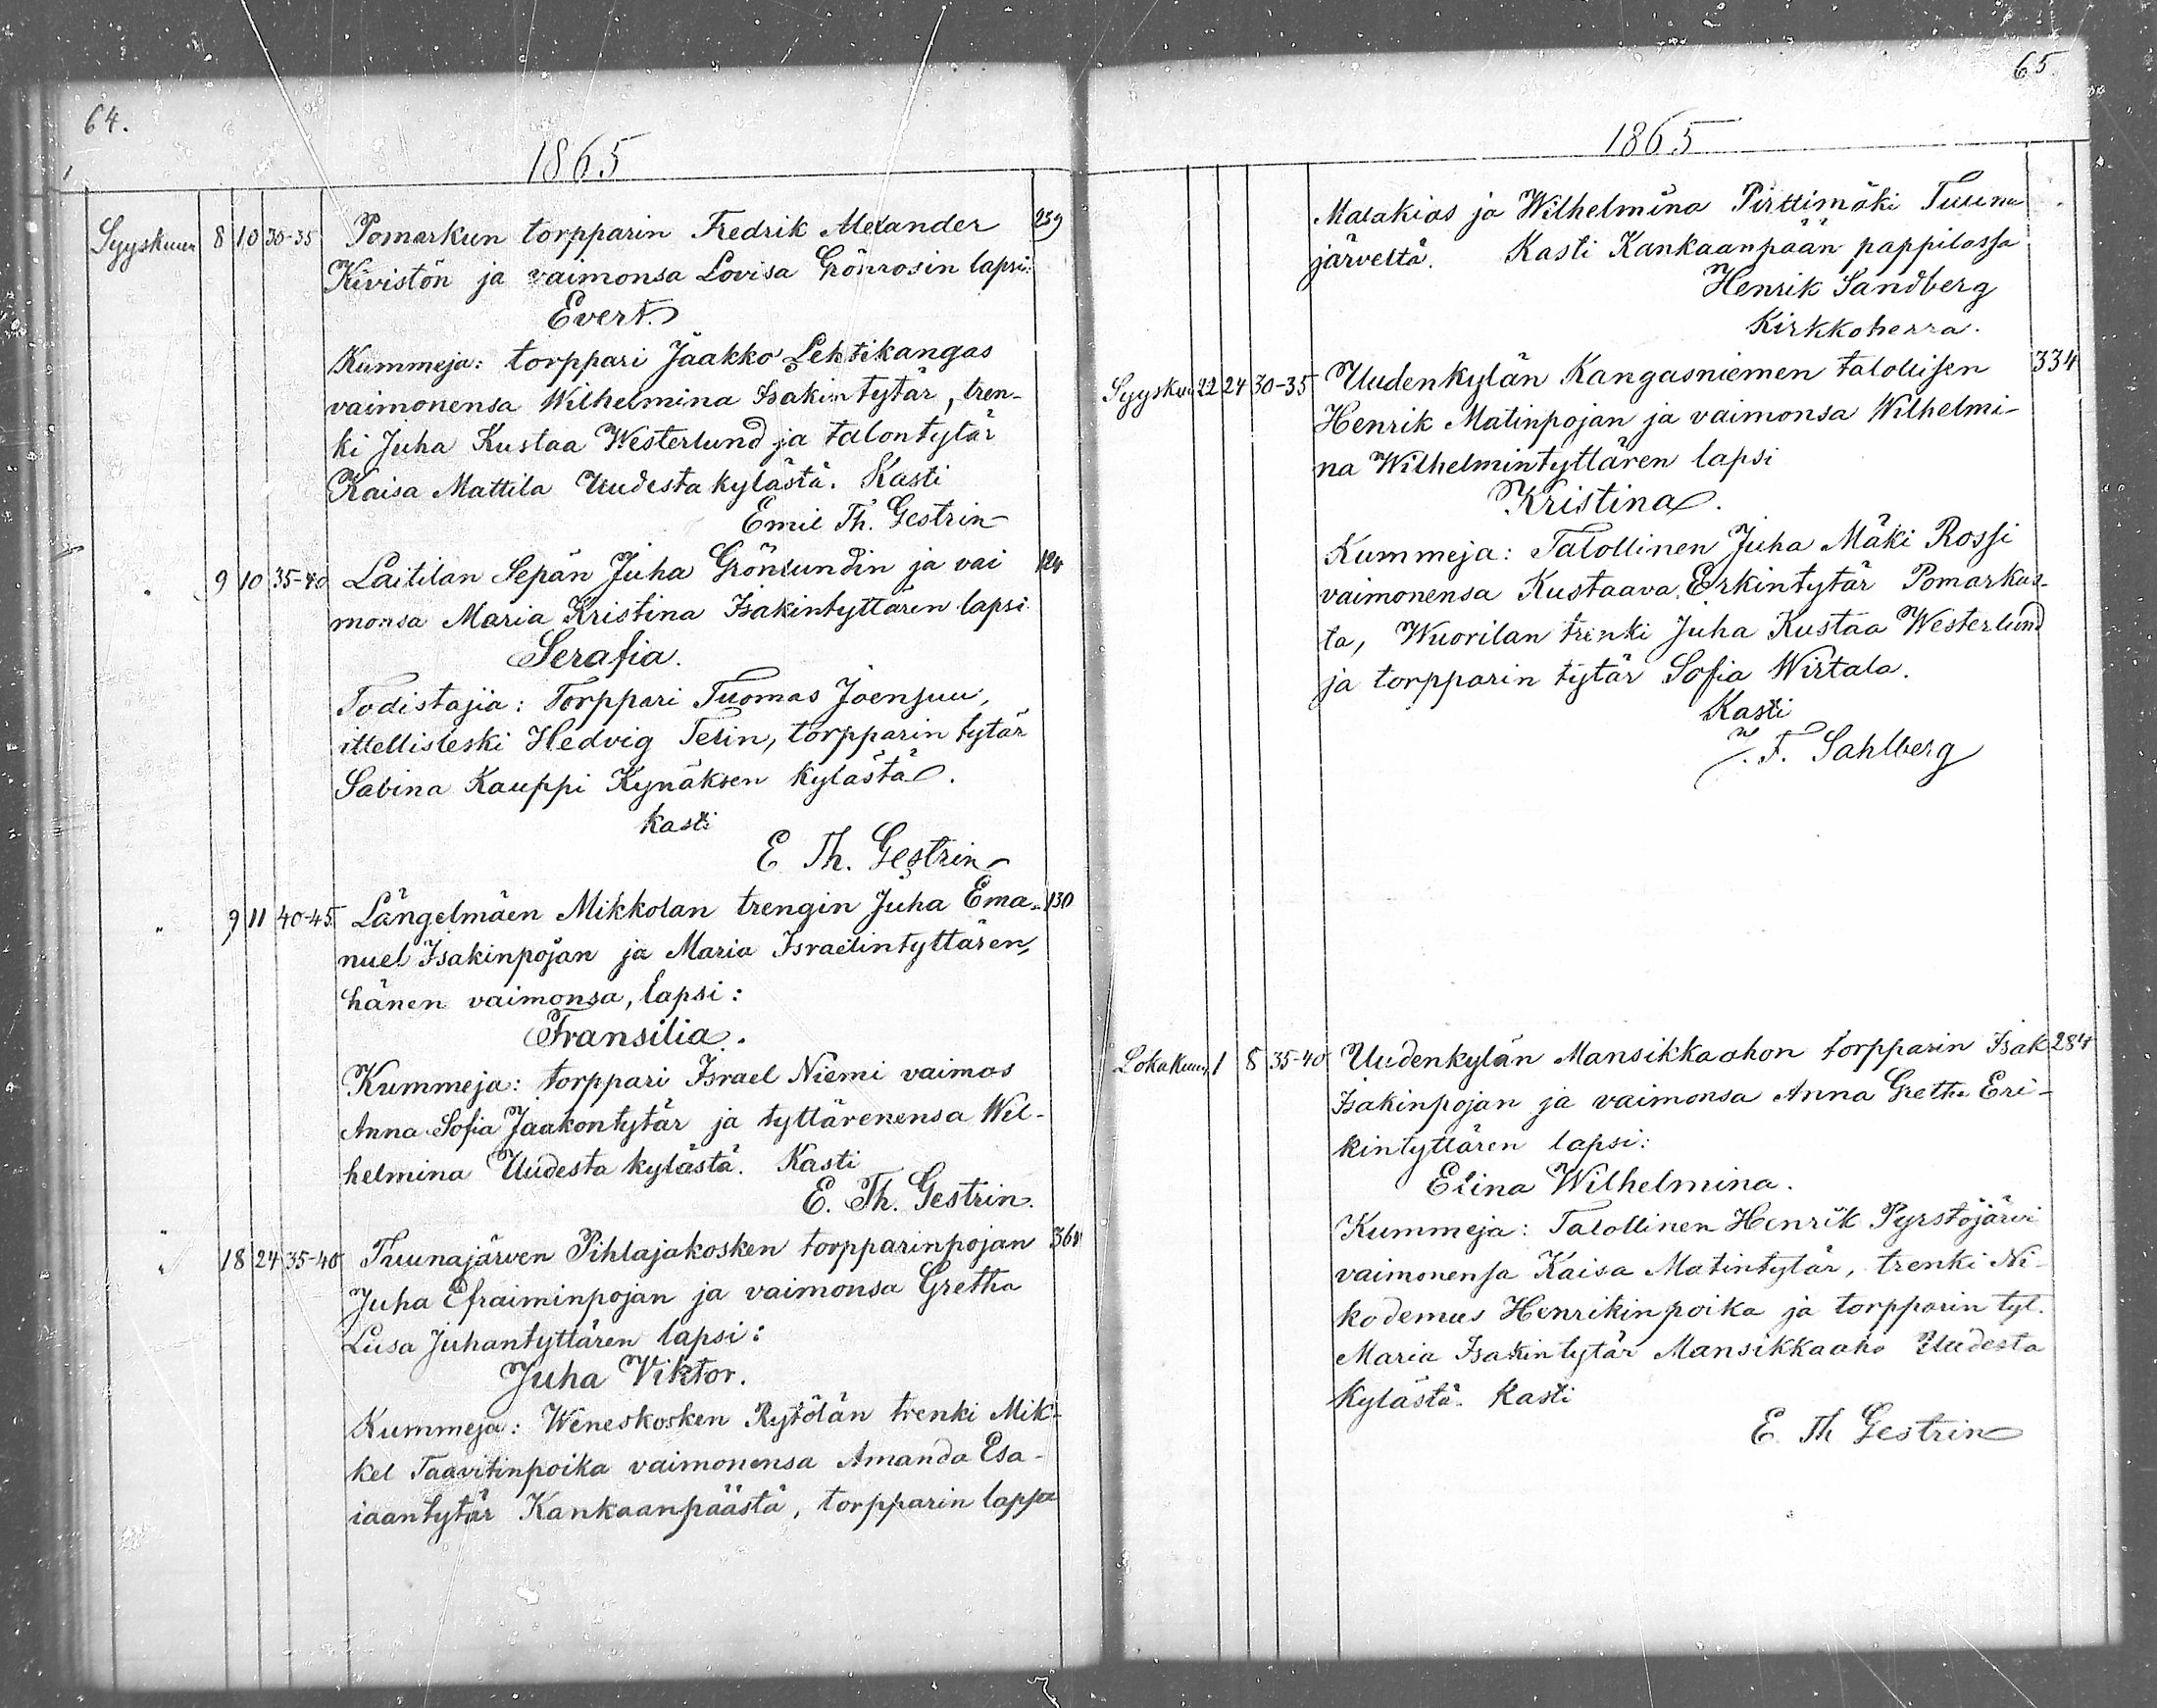 64.
1865
Syyskuun 8 10 30-35 Pomarkun torpparin Fredrik Alexander 259
Kivistön ja vaimonsa Lovisa Grönrosin lapsi:
Evert.
Kummeja: torppari Jaakko Lehtikangas
vaimonensa Wilhelmina Isakintytär, tren-
ki Juha Kustaa Westerlund ja talontytär
Kaisa Mattila Uudesta kylästä. Kasti
Emil Th. Gestrin
" 9 10 35-40 Laitilan Sepän Juha Grönlundin ja vai 124
monsa Maria Kristina Isakintyttären lapsi
Serafia.
Todistajia: Torppari Tuomas Joensuu,
ittellisleski Hedvig Telin, torpparin tytär
Sabina Kauppi Kynäksen kylästä.
kasti
E Th. Gestrin
" 9 11 40-45 Längelmäen Mikkolan trengin Juha Ema- 130
nuel Isakinpojan ja Maria Israelintyttären,
hänen vaimonsa, lapsi:
Fransilia.
Kummeja: torppari Israel Niemi vaimos
Anna Sofia Jaakontytär ja tyttärenensa Wil-
helmina Uudesta kylästä. Kasti
E. Th. Gestrin.
" 18 24 35-40 Tuunajärven Pihlajakosken torpparinpojan
Juha Efraiminpojan ja vaimonsa Gretha
Lusa Juhantyttären lapsi:
Juha Viktor.
Kummeja: Weneskosken Rytölän trenki Mik-
kel Taavitinpoika vaimonensa Amanda Esa-
iaantytär Kankaanpäästä, torpparin lapset
65
1865
Malakias ja Wilhelmina Pirttimäki Tuuna
järveltä. Kasti Kankaanpään pappilassa
Henrik Sandberg
Kirkkoherra.
Syyskuu 22 24 30-35 Uudenkylän Kangasniemen talollisen 334
Henrik Matinpojan ja vaimonsa Wilhelmi-
na Wilhelmintyttären lapsi
Kristina.
Kummeja: Talollinen Juha Mäki Rossi
vaimonensa Kustaava Erkintytär Pomarkus-
ta, Wuorilan trenki Juha Kustaa Westerlund
ja torpparin tytär Sofia Wirtala.
Kasti
F. Sahlberg
Lokakuun 1 8 35-40 Uudenkylän Mansikkaahon torpparin Isak 284
Isakinpojan ja vaimonsa Anna Gretha Eri-
kintyttären lapsi:
Elina Wilhelmina.
Kummeja: Talollinen Henrik Pyrstöjärvi
vaimonensa Kaisa Matintytär, trenki Ni-
kodemus Henrikinpoika ja torpparin tyt.
Maria Isakintytär Mansikkaaho Uudesta
Kylästä. Kasti
E. Th Gestrin